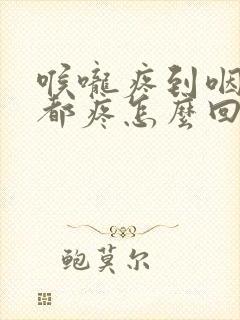 喉嚨疼到咽
都疼怎麼回
鲍莫尔